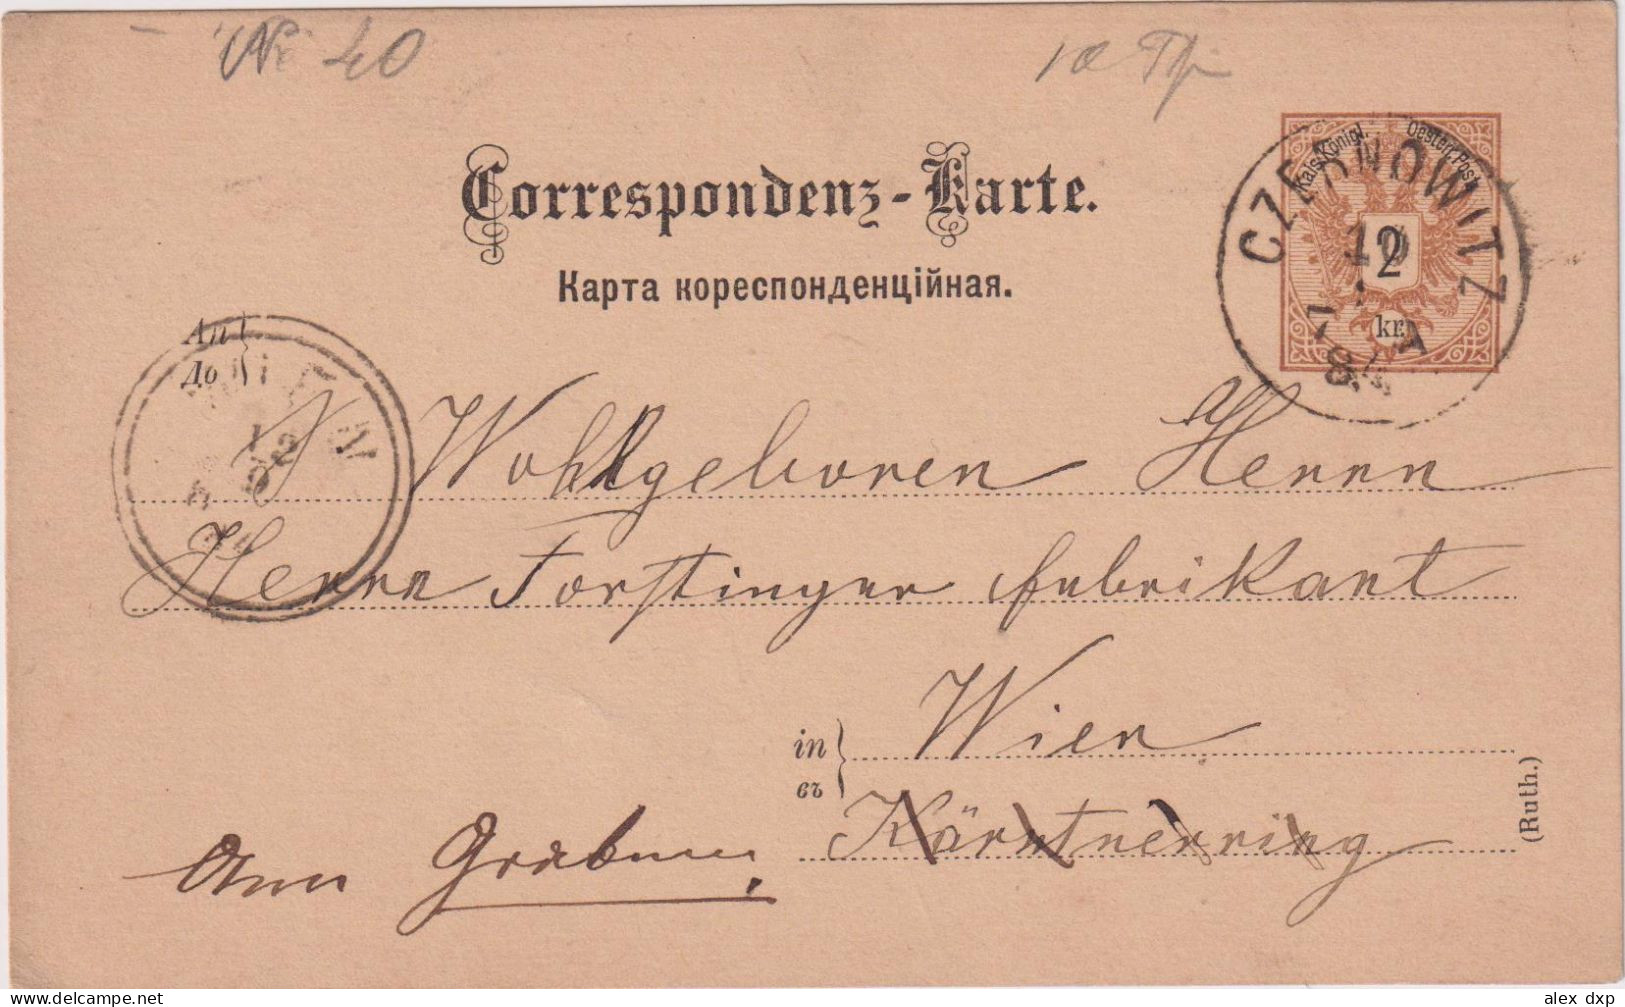 Nr 40
Correspondenz-Karte.
Карта кореспонденційная.
Kais. Königl. Oesterr. Post
2
kr.
CZERNOWITZ
An
До
WIEN
Wohlgeboren Herrn
Herrn Forstinger fabrikant
in
въ
Wien
Kärntnerring
Am Graben
(Ruth.)
alex dxp